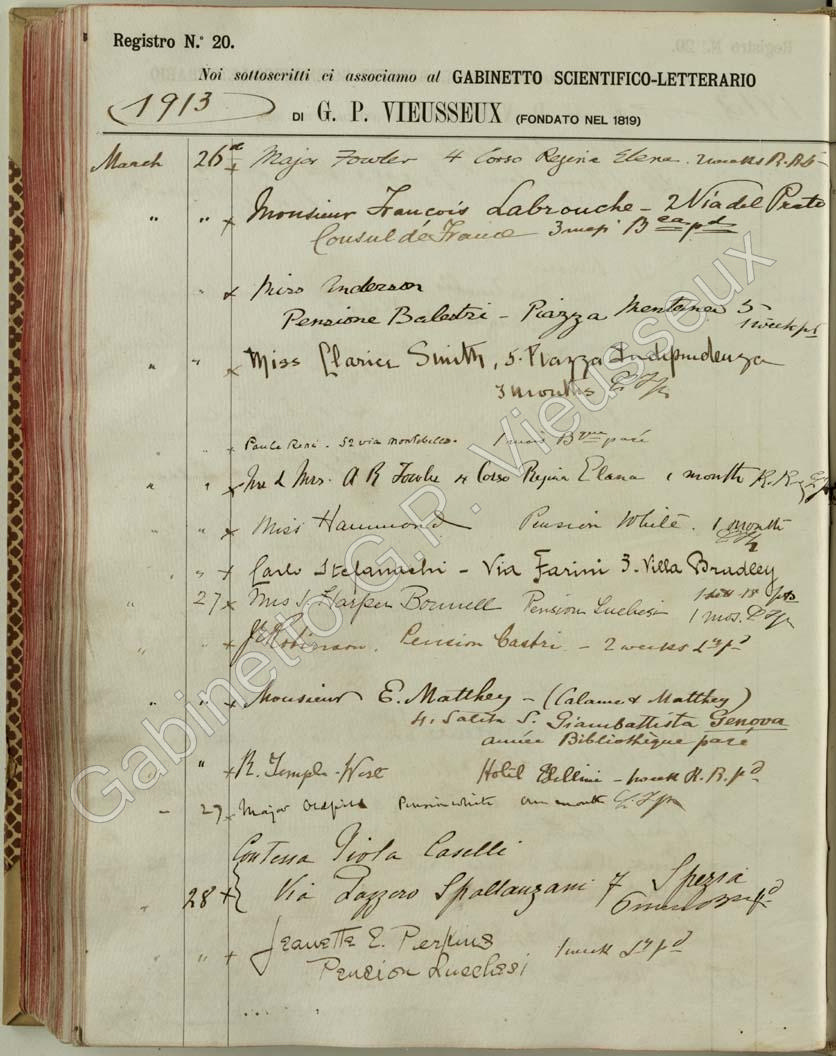 Registro N.° 20.
Noi sottoscritti ci associamo al GABINETTO SCIENTIFICO-LETTERARIO
1913
DI G. P. VIEUSSEUX (FONDATO NEL 1819)
March 26 x Major Fowler 4 Corso Regina Elena. 2 weeks R.R.
" " x Monsieur François Labrouche – 2 Via del Prato
Consul de France 3 mesi
" x Miss Anderson
Pensione Balestri – Piazza Mentana 5
1 week pd
" " x Miss Clarice Smith, 5. Piazza Indipendenza
3 months
" x 52 via Montebello. 1 mois payé
" " x Mr & Mrs. A R Fowler 4 Corso Regina Elena 1 month R.R.
" x Miss Hammond Pension White. 1 month
" x Carlo Stefanachi – Via Farini 3. Villa Bradley
" 27 x Mrs J. Harper Bonnell Pension Luchesi 1 mos.
" " x Robinson. Pension Castri – 2 weeks pd
" " x Monsieur E. Matthey – (Calame & Matthey)
4. Salita S. Giambattista Genova
année Bibliothèque payé
" x R. Temple-West Hotel – 1 week R.R. pd
– 27 x Major Pension White one month
Contessa Piola Caselli
" 28 x Via Lazzero Spallanzani 7 Spezia
" " x Jeanette E. Perkins 1 week pd
Pension Lucchesi
Gabinetto G.P. Vieusseux